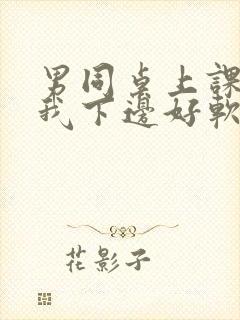 男同桌上課
我下邊好軟
花影子